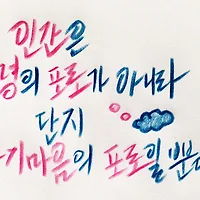 인간은
명의 포로가 아니라
단지
기마음의 포로일 뿐